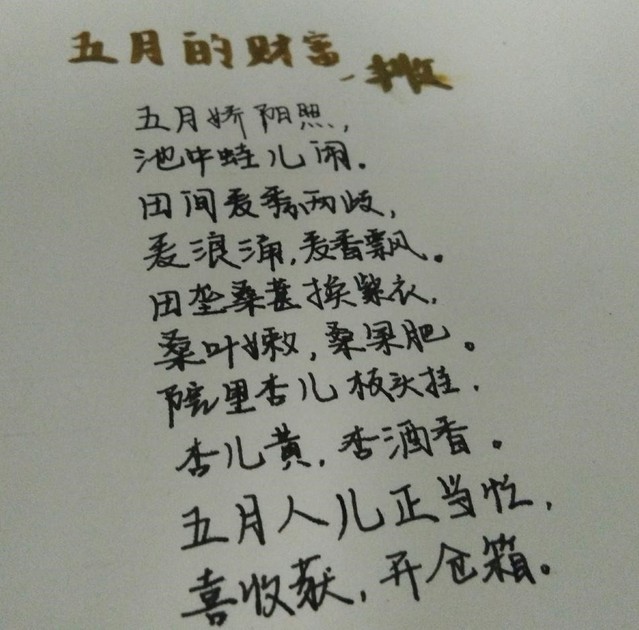 五月的财富、丰收
五月娇阳照，
池中蛙儿闹。
田间麦秀两歧，
麦浪涌，麦香飘。
田垄桑葚挨紫衣，
桑叶嫩，桑果肥。
院里杏儿枝头挂，
杏儿黄，杏酒香。
五月人儿正当忙，
喜收获，开仓箱。